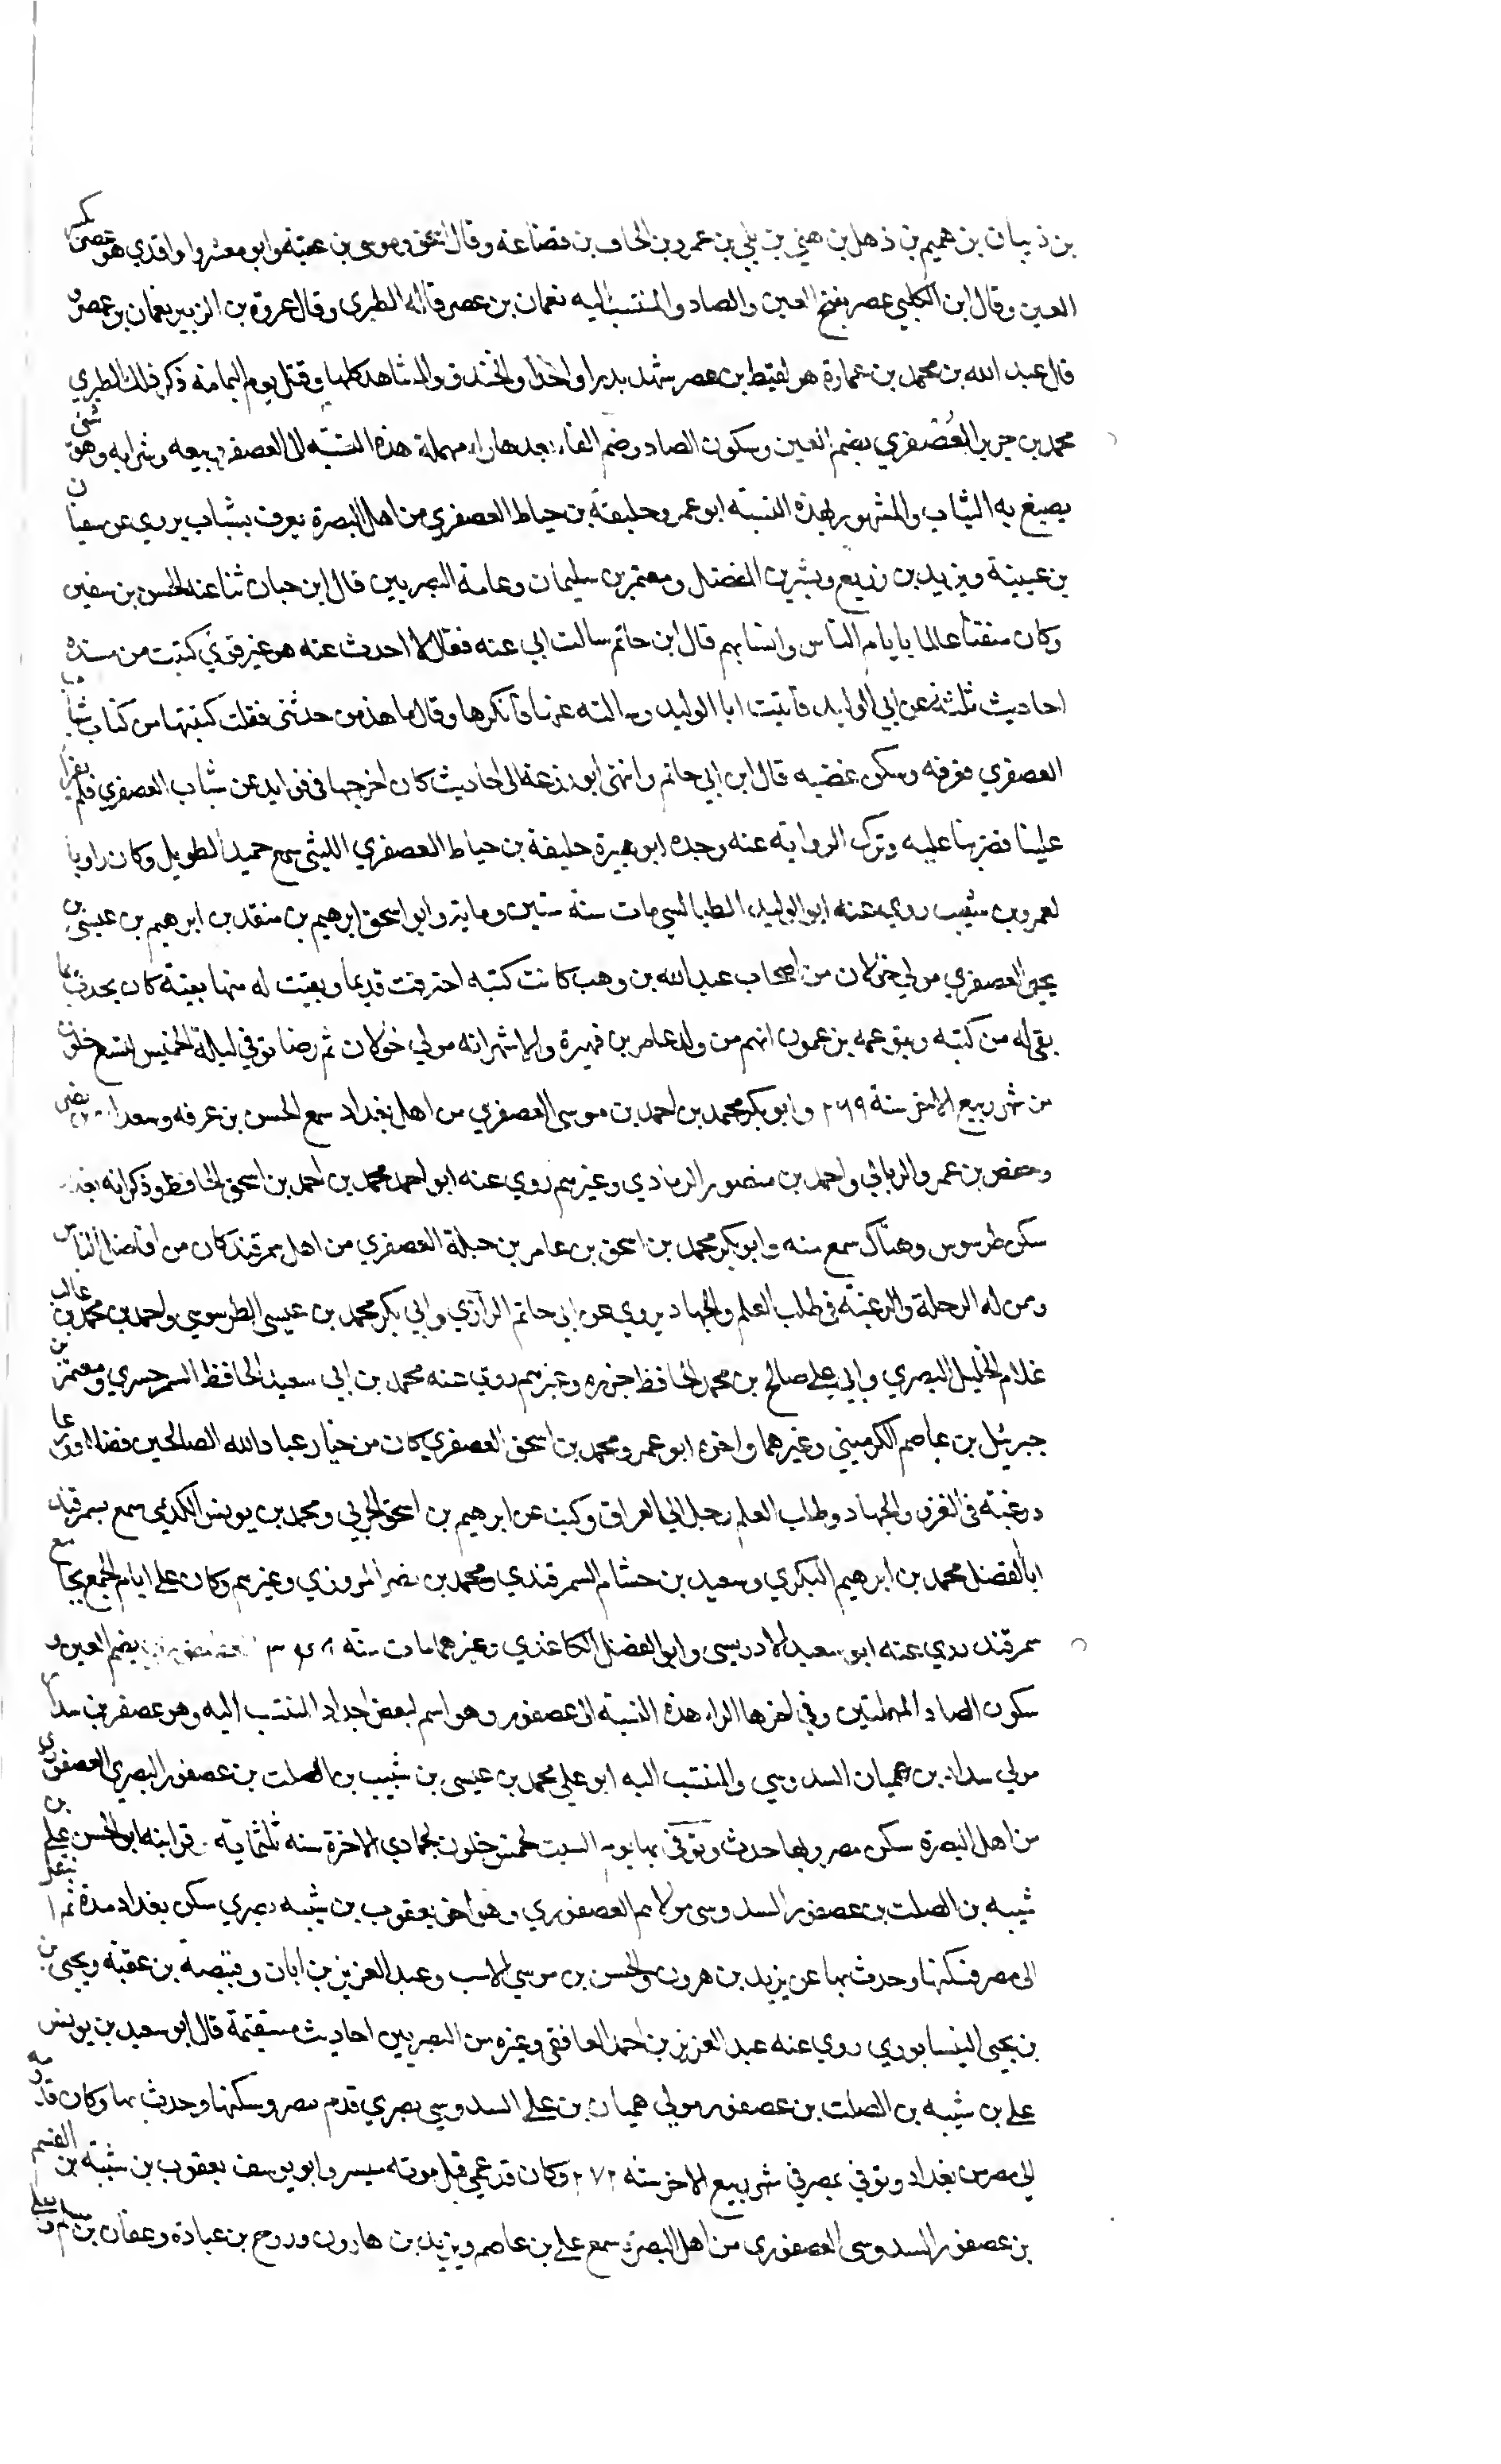 بن ذبيان بن هميم بن ذهل بن هني بن بلي بن عمرو بن الحاف بن قضاعة وقال اسحق وموسى بن عقبة وابو معشر والواقدي هو عصر بكسر
العين وقال ابن الكلبي عصر بفتح العين والصاد والمنتسب اليه نعمان بن عصر قاله الطبري وقال عروة بن الزبير نعمان بن عصر و
قال عبد الله بن محمد بن عمارة هو لقيط بن عصر شهد بدرا واحدا والخندق والمشاهد كلها وقتل يوم اليمامة ذكر ذلك الطبري
محمد بن جرير العُصْفري بضم العين وسكون الصاد وضم الفاء بعدها راء مهملة هذه النسبة الى العصفر وبيعه وشرايه وهو شي
يصبغ به الثياب والمشهور بهذه النسبة ابو عمرو خليفة بن خياط العصفري من اهل البصرة يعرف بشباب يروي عن سفيان
بن عيينة ويزيد بن زريع وبشر بن الفضل ومعتمر بن سليمان وعامة البصريين قال ابن حبان ثنا عنه الحسن بن سفين
وكان متقنا عالما بايام الناس وانسابهم قال ابن حاتم سالت ابي عنه فقال لا احدث عنه هو غير قوي كتبت من مسنده
احاديث ثلثة عن ابي الوليد فاتيت ابا الوليد وسالته عنها فانكرها وقال ما هذه من حديثي فقلت كتبتها من كتاب شباب
العصفري فعرفه وسكن غضبه قال ابن ابي حاتم وانتهى ابو زرعة الى احاديث كان اخرجها في فوايده عن شباب العصفري فلم يقرا
علينا فضربنا عليه وترك الرواية عنه وجده ابو هبيرة خليفة بن خياط العصفري الليثي سمع حميد الطويل وكان راويا
لعمرو بن شعيب روى عنه ابو الوليد الطيالسي مات سنة ستين وماية وابو اسحق ابرهيم بن منقذ بن ابرهيم بن عيسى بن
يحيى العصفري مولي خولان من اصحاب عبد الله بن وهب كانت كتبه احترقت قديما وبقيت له منها بقية كان يحدث بما
بقي له من كتبه انهم من ولد عامر بن فهيرة والاشهر انه مولي خولان ثم رضا توفي ليلة الخميس لتسع خلون
من شهر ربيع الاخر سنة ٢٦٩ وابو بكر محمد بن احمد بن موسى العصفري من اهل بغداد سمع الحسن بن عرفه وسعدان بن نصر
وحفص بن عمرو الربالي واحمد بن منصور الرمادي وغيرهم روي عنه ابو احمد محمد بن احمد بن اسحق الحافظ وذكر انه
سكن طرسوس وهناك سمع منه وابو بكر محمد بن اسحق بن عامر بن حبلة العصفري من اهل سمرقند كان من افاضل الناس
ومن له الرحلة والرغبة في طلب العلم والجهاد يروي عن ابي حاتم الرازي وابي بكر محمد بن عيسى الطرسوسي واحمد بن محمد بن غالب
غلام الخليل البصري وابي علي صالح بن محمد الحافظ جزره وغيرهم روى عنه محمد بن ابي سعيد الحافظ السرخسي ومعتمر بن
جبرئيل بن عاصم الكرميني وغيرهما واخوه ابو عمرو محمد بن اسحق العصفري كان من خيار عباد الله الصالحين فضلا وورعا
ورغبة في الغزو والجهاد وطلب العلم رحل الى العراق وكتب عن ابرهيم بن اسحق الحربي ومحمد بن يونس الكديمي سمع بسمرقند
ابا الفضل محمد بن ابرهيم البكري وسعيد بن حشام السمرقندي ومحمد بن نصر المروزي وغيرهم وكان علي ايام الجمع بجامع
سمرقند روي عنه ابو سعيد الادريسي وابو الفضل الكاغذي وغيرهما مات سنة بضم العين و
سكون الصاد المهملتين وفي اخرها الراء هذه النسبة الى عصفور وهو اسم لبعض اجداد المنتسب اليه وهو عصفر بن سداس
مولي سداد بن هميان السدوسي والمنتسب اليه ابو علي محمد بن عيسى بن شيبب بن الصلت بن عصفور البصري العصفوري
من اهل البصرة سكن مصر وبها حدث وتوفي بها يوم السبت لخمس خلون لجمادي الاخرة سنة ثلثماية قرابته ابو الحسن علي بن
شيبه بن الصلت بن عصفور السدوسي مولاهم العصفوري وهو اخو يعقوب بن شيبه بصري سكن بغداد مدة ثم انتقل
الى مصر فسكنها وحدث بها عن يزيد بن هرون والحسن بن موسي الاشيب وعبد العزيز بن ابان وقبيصة بن عقبة ويحيى بن
بن يحيى النيسابوري روي عنه عبد العزيز بن احمد الغافقي وغيره من المصريين احاديث مستقيمة قال ابو سعيد بن يونس
علي بن شيبه بن الصلت بن عصفور مولي هميان بن علي السدوسي بصري قدم مصر وسكنها وحدث بها وكان قدومه
الى مصر من بغداد وتوفي بمصر في شهر ربيع الاخر سنة ٢٧٢ وكان قد عمي قبل موته بيسير وابو يوسف يعقوب بن شيبة بن
بن عصفور السدوسي العصفوري من اهل البصرة سمع علي بن عاصم ويزيد بن هارون وروح بن عبادة وعفان بن مسلم